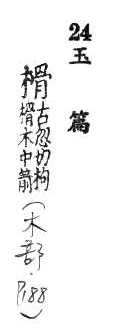 24
玉篇
榾 古忽切枸
榾木中箭
(木部·P188)